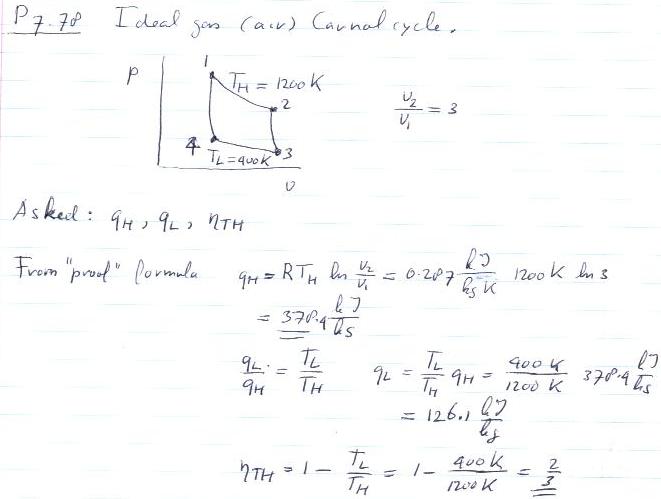 P7.78 Ideal gas (air) Carnot cycle.
P
1
T_H = 1200 K
2
v_2/v_1 = 3
4
T_L = 400K
3
v
Asked: q_H, q_L, η_TH
From "proof" formula q_H = R T_H ln v_2/v_1 = 0.287 kJ/kg K 1200 K ln 3
= 378.4 kJ/kg
q_L/q_H = T_L/T_H q_L = T_L/T_H q_H = 400 K/1200 K 378.4 kJ/kg
= 126.1 kJ/kg
η_TH = 1 - T_L/T_H = 1 - 400K/1200K = 2/3